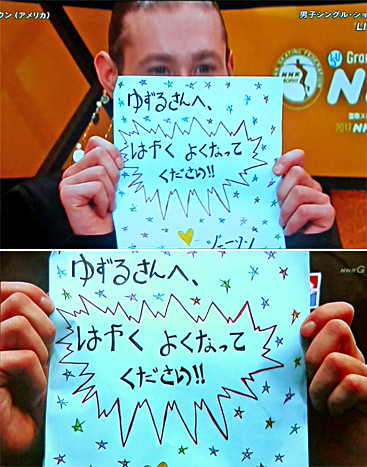 ウン(アメリカ)
男子シングル・ショ
LI
NHK
TROPHY
Gran
N
国際スケ
2017 NH
ゆずるさんへ、
はやく よくなって
ください!!
NHK G
ゆずるさんへ、
はやく よくなって
ください!!